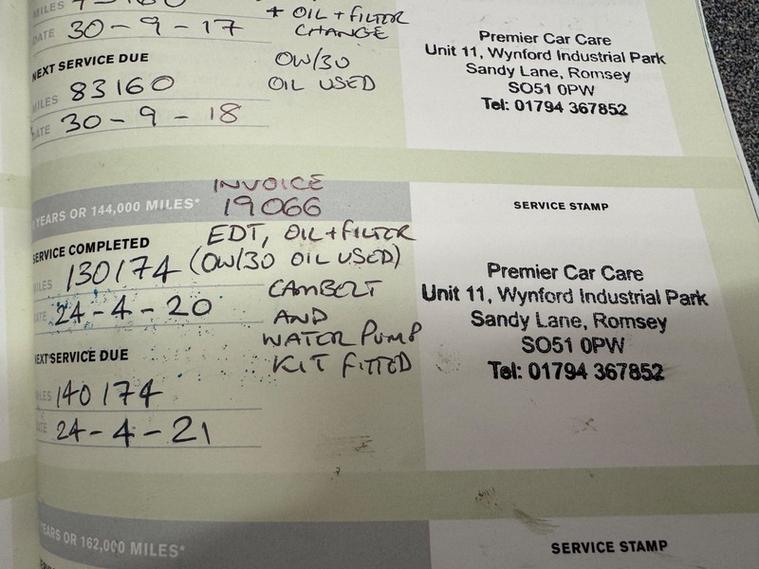 MILES
DATE 30-9-17
+ OIL + FILTER
CHANGE
NEXT SERVICE DUE
MILES 83160
DATE 30-9-18
0W/30
OIL USED
Premier Car Care
Unit 11, Wynford Industrial Park
Sandy Lane, Romsey
SO51 0PW
Tel: 01794 367852
YEARS OR 144,000 MILES*
INVOICE
19066
SERVICE COMPLETED
EDT, OIL + FILTER
MILES 130174 (0W/30 OIL USED)
DATE 24-4-20
CAMBELT
AND
WATER PUMP
KIT FITTED
NEXT SERVICE DUE
MILES 140174
DATE 24-4-21
SERVICE STAMP
Premier Car Care
Unit 11, Wynford Industrial Park
Sandy Lane, Romsey
SO51 0PW
Tel: 01794 367852
YEARS OR 162,000 MILES*
SERVICE STAMP